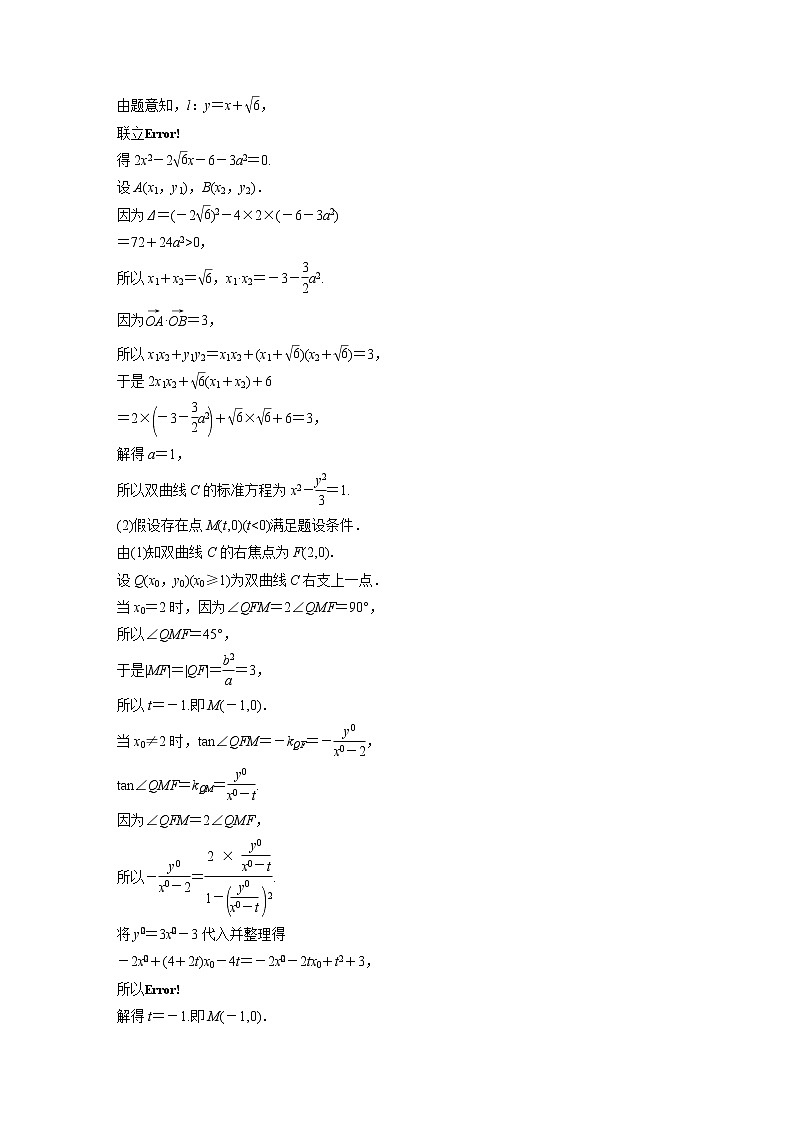 由题意知，l：y＝x＋√6，
联立Error!
得 2x²－2√6x－6－3a²＝0.
设 A(x₁，y₁)，B(x₂，y₂)．
因为 Δ＝(－2√6)²－4×2×(－6－3a²)
＝72＋24a²>0，
所以 x₁＋x₂＝√6，x₁·x₂＝－3－3/2a².
因为OA→·OB→＝3，
所以 x₁x₂＋y₁y₂＝x₁x₂＋(x₁＋√6)(x₂＋√6)＝3，
于是 2x₁x₂＋√6(x₁＋x₂)＋6
＝2×(－3－3/2a²)＋√6×√6＋6＝3，
解得 a＝1，
所以双曲线 C 的标准方程为 x²－y²/3＝1.
(2)假设存在点 M(t,0)(t<0)满足题设条件．
由(1)知双曲线 C 的右焦点为 F(2,0)．
设 Q(x₀，y₀)(x₀≥1)为双曲线 C 右支上一点．
当 x₀＝2 时，因为∠QFM＝2∠QMF＝90°，
所以∠QMF＝45°，
于是|MF|＝|QF|＝b²/a＝3，
所以 t＝－1.即 M(－1,0)．
当 x₀≠2 时，tan∠QFM＝－k_QF＝－y0/(x0－2)，
tan∠QMF＝k_QM＝y0/(x0－t).
因为∠QFM＝2∠QMF，
所以－y0/(x0－2)＝(2 × y0/(x0－t))/(1－(y0/(x0－t))2).
将 y²₀＝3x²₀－3 代入并整理得
－2x²₀＋(4＋2t)x₀－4t＝－2x²₀－2tx₀＋t²＋3，
所以Error!
解得 t＝－1.即 M(－1,0)．